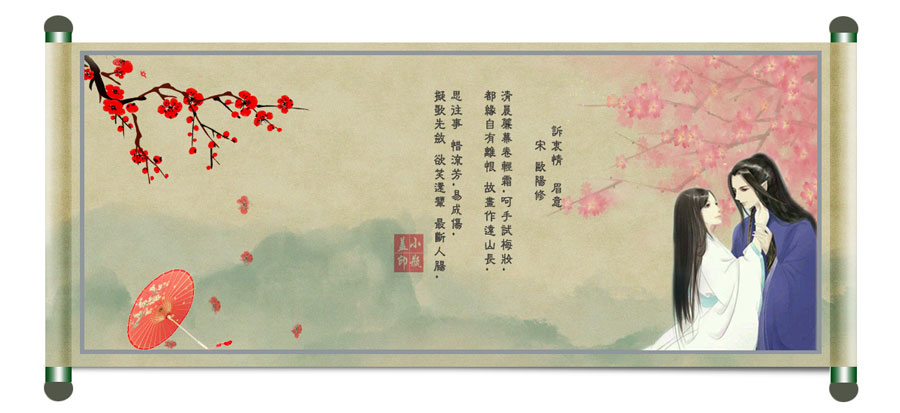 訴衷情 眉意
宋 歐陽修
清晨簾幕卷輕霜,呵手試梅妝,
都緣自有離恨 故畫作遠山長,
思往事 惜流芳,易成傷,
擬歌先斂 欲笑還顰 最斷人腸,